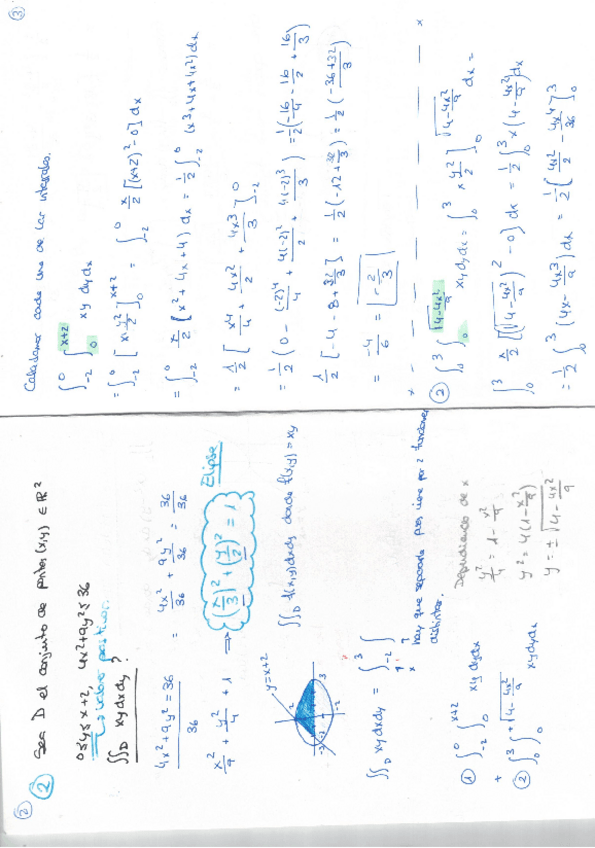 ②
② Sea D el conjunto de puntos (x,y) ∈ ℝ²
0≤y≤x+2, 4x²+9y²≤36
↳ valores positivos.
∬_D xy dx dy ?
4x²+9y²=36 / 36 = 4x²/36 + 9y²/36 = 36/36
x²/9 + y²/4 + 1 ⇒ (x/3)² + (y/2)² = 1 Elipse
∬_D f(x,y)dxdy donde f(x,y)=xy
y=x+2
∬_D xy dx dy = ∫_{-2}^{3} ∫
hay que separarlo pues viene por 2 funciones
distintas.
① ∫_{-2}^{0} ∫_{0}^{x+2} xy dy dx
+
② ∫_{0}^{3} ∫_{0}^{+√(4-4x²/9)} xy dy dx
Dependiendo de x
y²/4 = 1 - x²/9
y² = 4(1 - x²/9)
y = ±√(4 - 4x²/9)
③
Calculamos cada una de las integrales.
∫_{-2}^{0} ∫_{0}^{x+2} xy dy dx
= ∫_{-2}^{0} [x·y²/2]_{0}^{x+2} = ∫_{-2}^{0} x/2 [(x+2)²-0] dx
= ∫_{-2}^{0} x/2 [x²+4x+4] dx = 1/2 ∫_{-2}^{0} (x³+4x+4x²) dx
= 1/2 [x⁴/4 + 4x²/2 + 4x³/3]_{-2}^{0}
= 1/2 (0 - (-2)⁴/4 + 4(-2)²/2 + 4(-2)³/3) = 1/2 (-16/4 - 16/2 + 16/3)
1/2 [-4 - 8 + 32/3] = 1/2 (-12 + 32/3) = 1/2 (-36+32/3)
= -4/6 = [-2/3]
x — — — — — — x
② ∫_{0}^{3} ∫_{0}^{√(4-4x²/9)} xy dy dx = ∫_{0}^{3} x y²/2 ]_{0}^{√(4-4x²/9)} dx =
∫_{0}^{3} x/2 [(√(4-4x²/9))² - 0] dx = 1/2 ∫_{0}^{3} x (4-4x²/9) dx
= 1/2 ∫_{0}^{3} (4x - 4x³/9) dx = 1/2 [4x²/2 - 4x⁴/36]_{0}^{3}